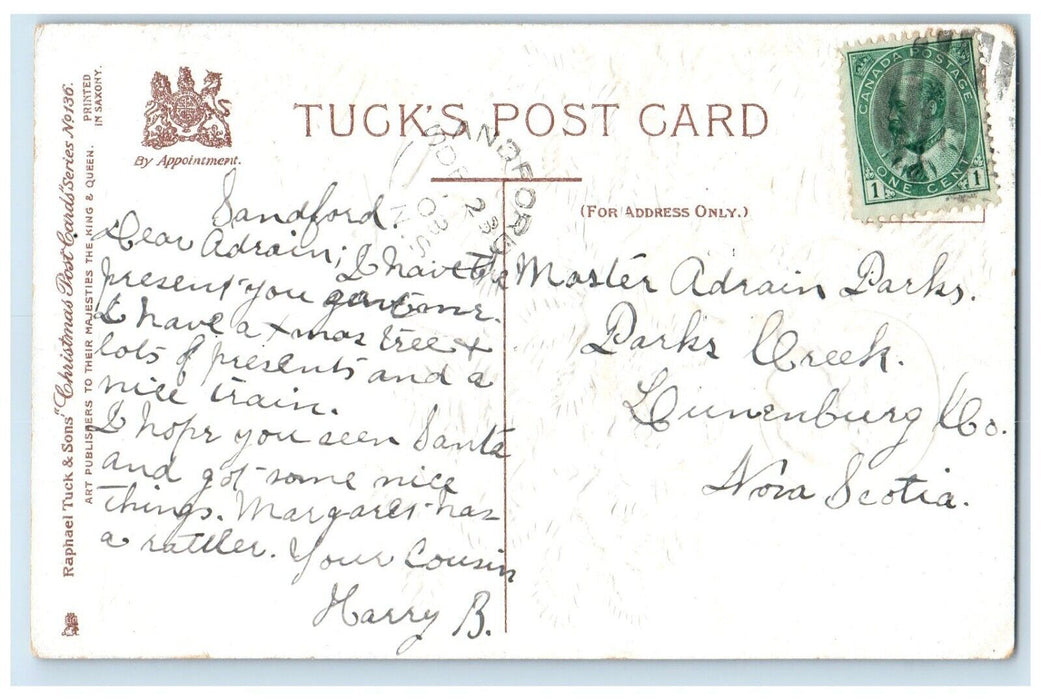 TUCK'S POST CARD
By Appointment.
(FOR ADDRESS ONLY.)
CANADA POSTAGE
1 ONE CENT 1
Raphael Tuck & Sons' "Christmas Post Cards" Series No 136.
ART PUBLISHERS TO THEIR MAJESTIES THE KING & QUEEN.
PRINTED
IN SAXONY.
Sandford.
Dear Adrain; I have the
present you gave me.
I have a xmas tree &
lots of presents and a
nice train.
I hope you seen Santa
and got some nice
things. Margaret has
a rattler. Your Cousin
Harry B.
Master Adrain Parks.
Parks Creek.
Lunenburg Co.
Nova Scotia.